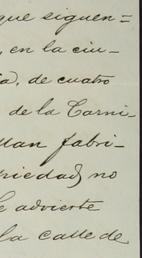 que siguen=
, en la ciu-
a, de cuatro
de la Carni-
llan fabri-
riedad, no
e advierte
la calle de